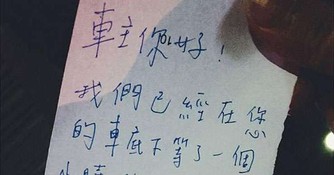 車主您好！
我們已經在您
的車底下等了一個
小時